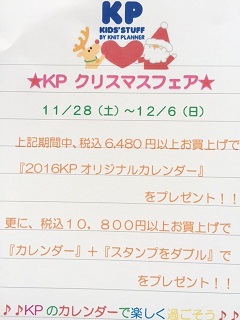 KP
KIDS'STUFF
BY KNIT PLANNER
★KP クリスマスフェア★
11/28（土）～12/6（日）
上記期間中、税込6,480円以上お買上げで
『2016KPオリジナルカレンダー』
をプレゼント！！
更に、税込１０，８００円以上お買上げで
『カレンダー』＋『スタンプをダブル』で
をプレゼント！！
♪♪KPのカレンダーで楽しく過ごそう♪♪